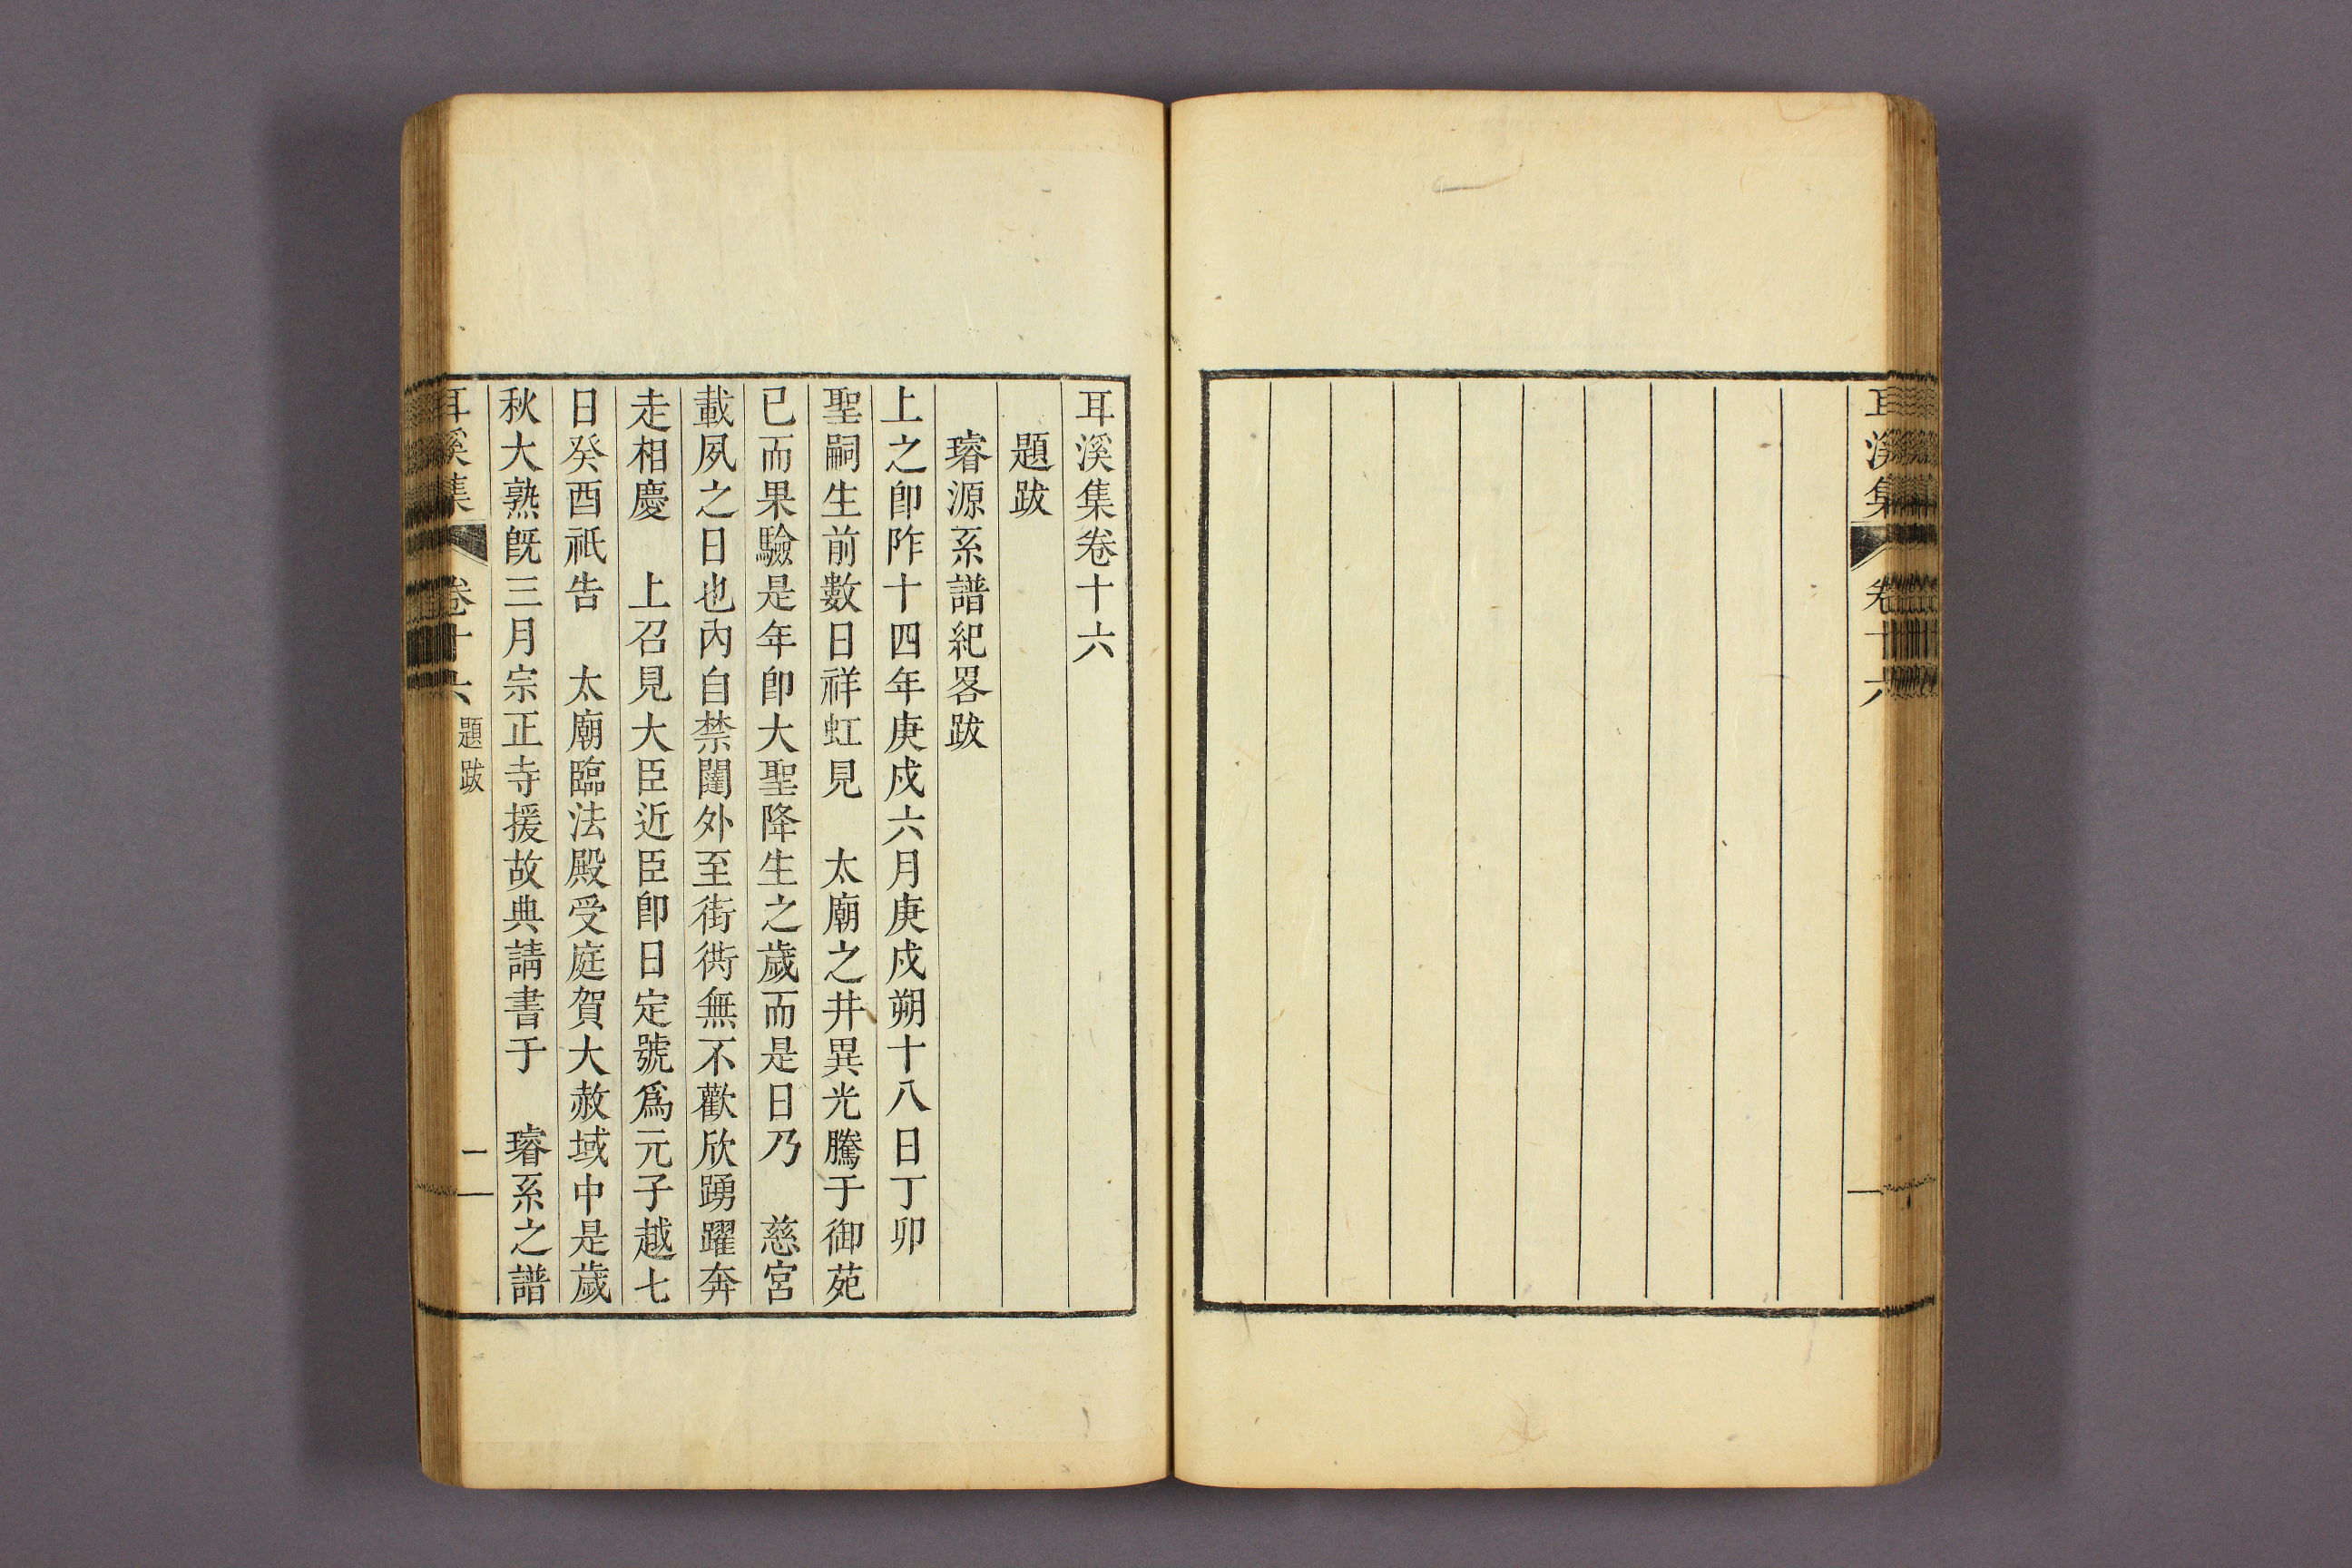 耳溪集 卷十六
耳溪集卷十六
題跋
璿源系譜紀畧跋
上之卽阼十四年庚戌六月庚戌朔十八日丁卯
聖嗣生前數日祥虹見 太廟之井異光騰于御苑
已而果驗是年卽大聖降生之歲而是日乃 慈宮
載夙之日也內自禁闥外至街衖無不歡欣踴躍奔
走相慶 上召見大臣近臣卽日定號爲元子越七
日癸酉祇告 太廟臨法殿受庭賀大赦域中是歲
秋大熟旣三月宗正寺援故典請書于 璿系之譜
耳溪集 卷十六 題跋 一